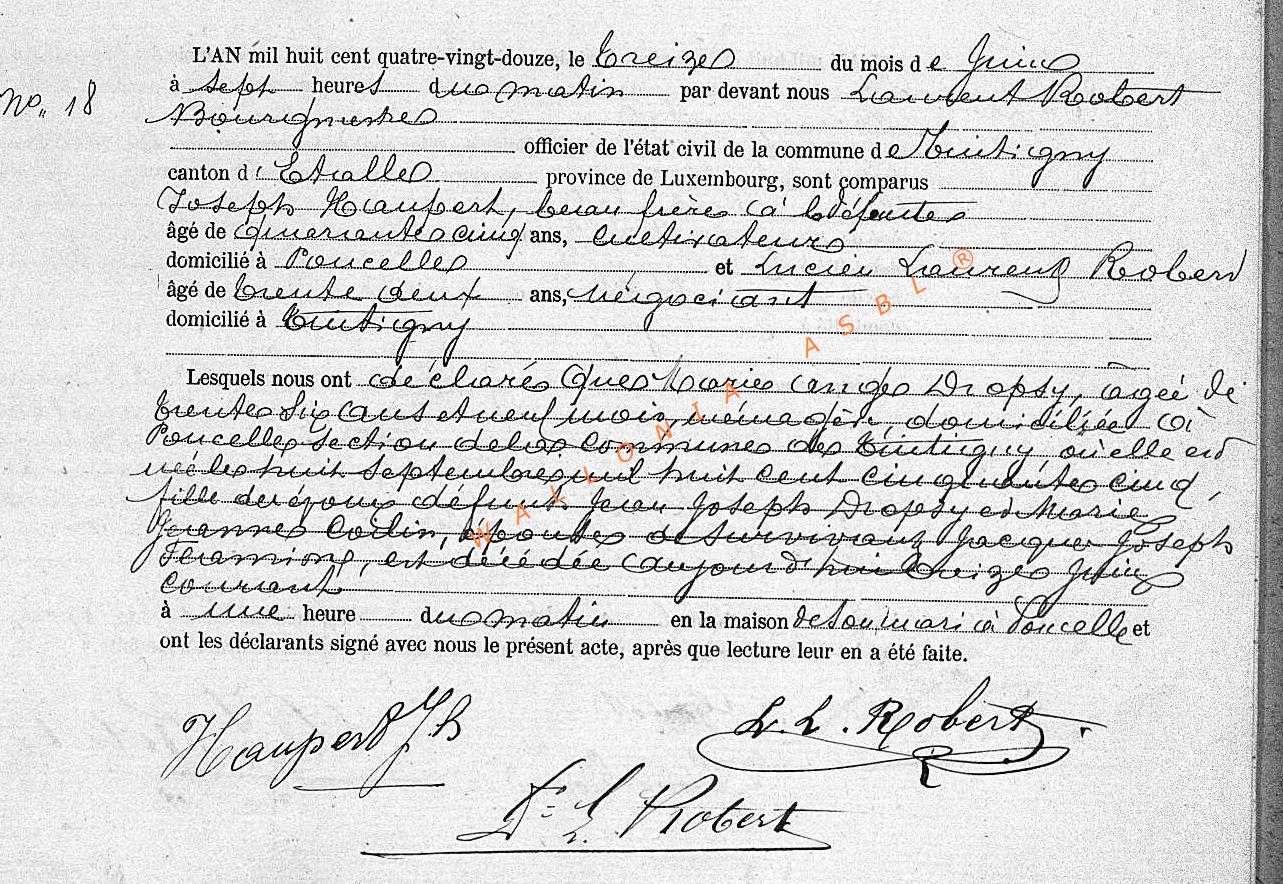 L'AN mil huit cent quatre-vingt-douze, le treize du mois de Juin
No. 18
à sept heures du matin par devant nous Laurent Robert
Bourgmestre
officier de l'état civil de la commune de Tintigny
canton d'Etalle province de Luxembourg, sont comparus
Joseph Haupert, beau frère à la défunte
âgé de quarante cinq ans, cultivateur
domicilié à Poncelle et Lucien Laurent Robert
âgé de trente deux ans, négociant
domicilié à Tintigny
Lesquels nous ont déclaré que Marie Dropsy, agée de
trente six ans et neuf mois, ménagère, domiciliée à
Poncelle section de la commune de Tintigny, où elle est
née le huit septembre mil huit cent cinquante cinq,
fille des époux défunts Jean Joseph Dropsy et Marie
Jeanne Collin, épouse de survivant Jacques Joseph
est décédée aujourd'hui treize Juin
courant
à une heure du matin en la maison de son mari à Poncelle et
ont les déclarants signé avec nous le présent acte, après que lecture leur en a été faite.
Haupert Jh
L. L. Robert.
Dr L. Robert
WALLONIA ASBL ®